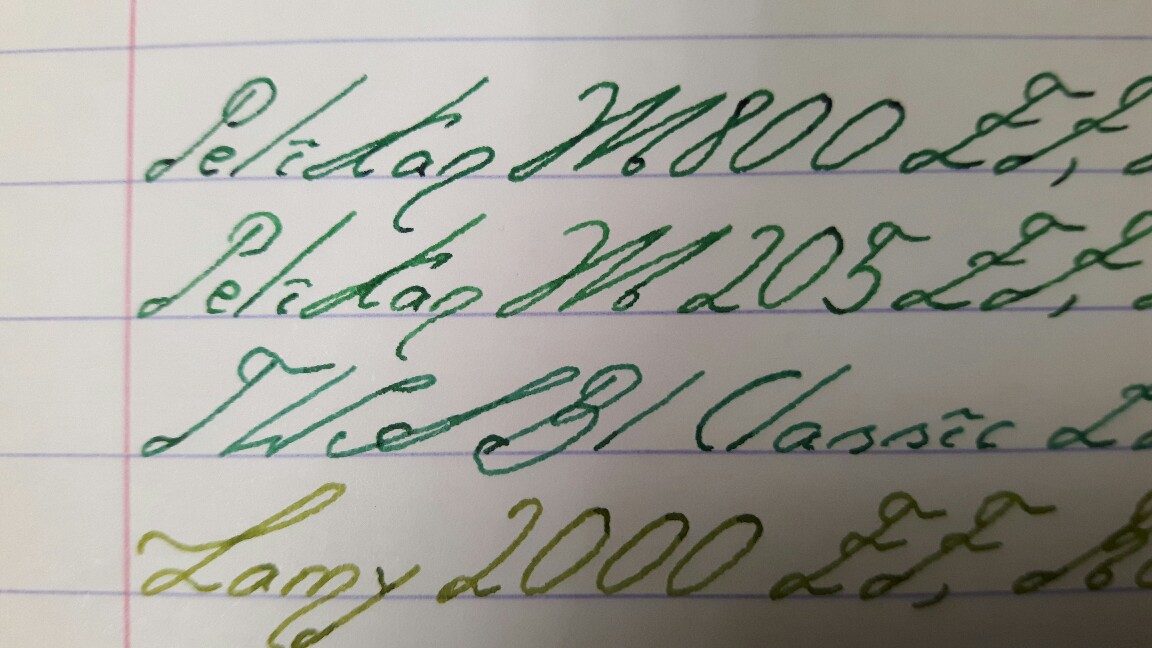 Pelikan M800 EF,
Pelikan M205 EF,
TWSBI Classic
Lamy 2000 EF,